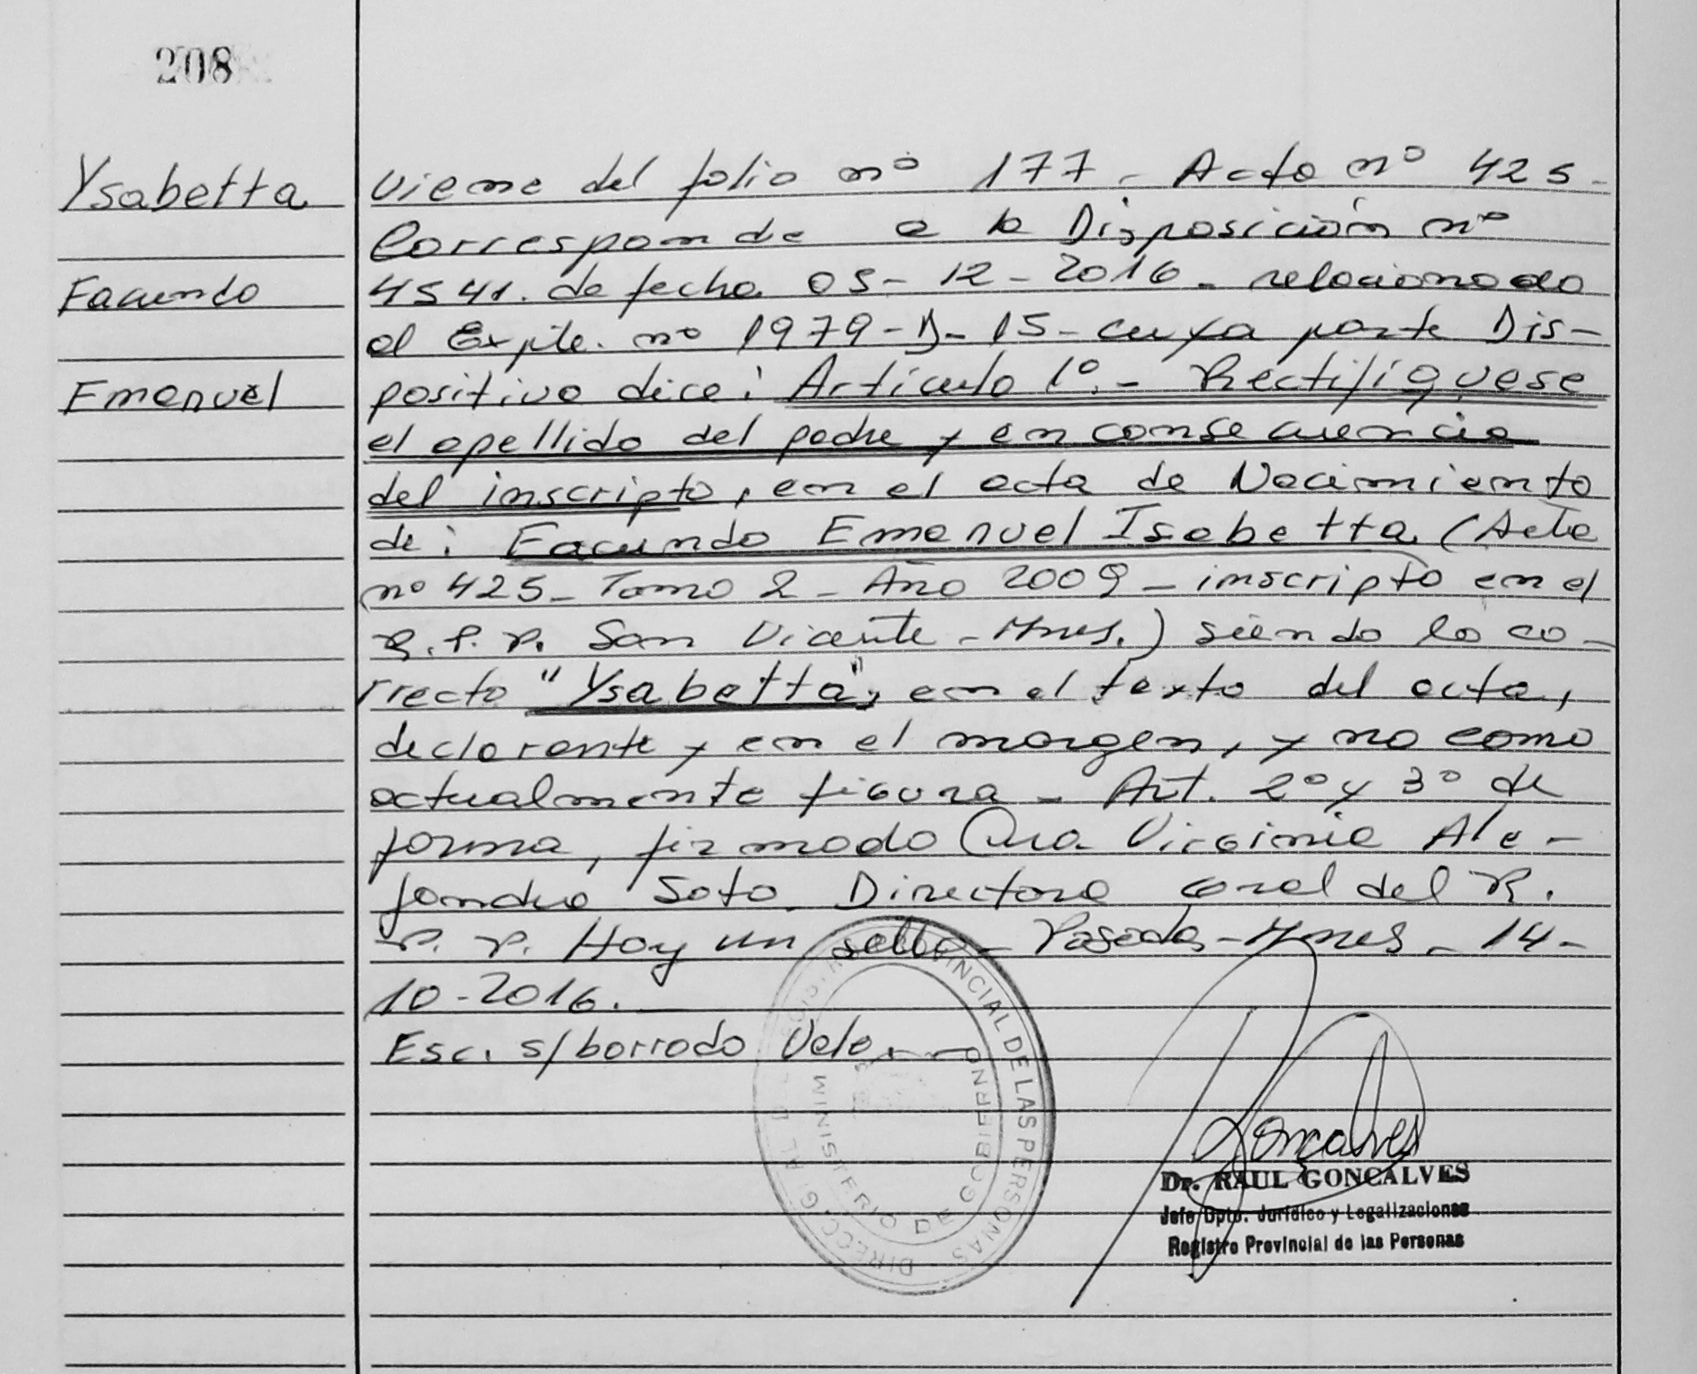 208
Ysabetta
Facundo
Emanuel
Viene del folio nº 177 - Acta nº 425 -
Corresponde a la Disposición nº
4541. de fecha 05 - 12 - 2016 - relacionada
al Expte. nº 1979 - D - 15 - cuya parte Dis-
positiva dice: Artículo 1º. - Rectifíquese
el apellido del padre y en consecuencia
del inscripto, en el acta de Nacimiento
de: Facundo Emanuel Isabetta (Acta
nº 425 - Tomo 2 - Año 2009 - inscripto en el
R. P. P. San Vicente - Mnes.) siendo lo co-
rrecto "Ysabetta", en el texto del acta,
declarante y en el margen, y no como
actualmente figura - Art. 2º y 3º de
forma, firmado Cra. Virginia Ale-
jandra Soto. Directora Gral del R.
P. P. Hay un sello - Posadas - Mnes - 14 -
10 - 2016.
Esc. s/borrado Vale.
DIRECC. GRAL. DEL REGISTRO PROVINCIAL DE LAS PERSONAS
MINISTERIO DE GOBIERNO
Goncalves
Dr. RAUL GONCALVES
Jefe Dpto. Jurídico y Legalizaciones
Registro Provincial de las Personas